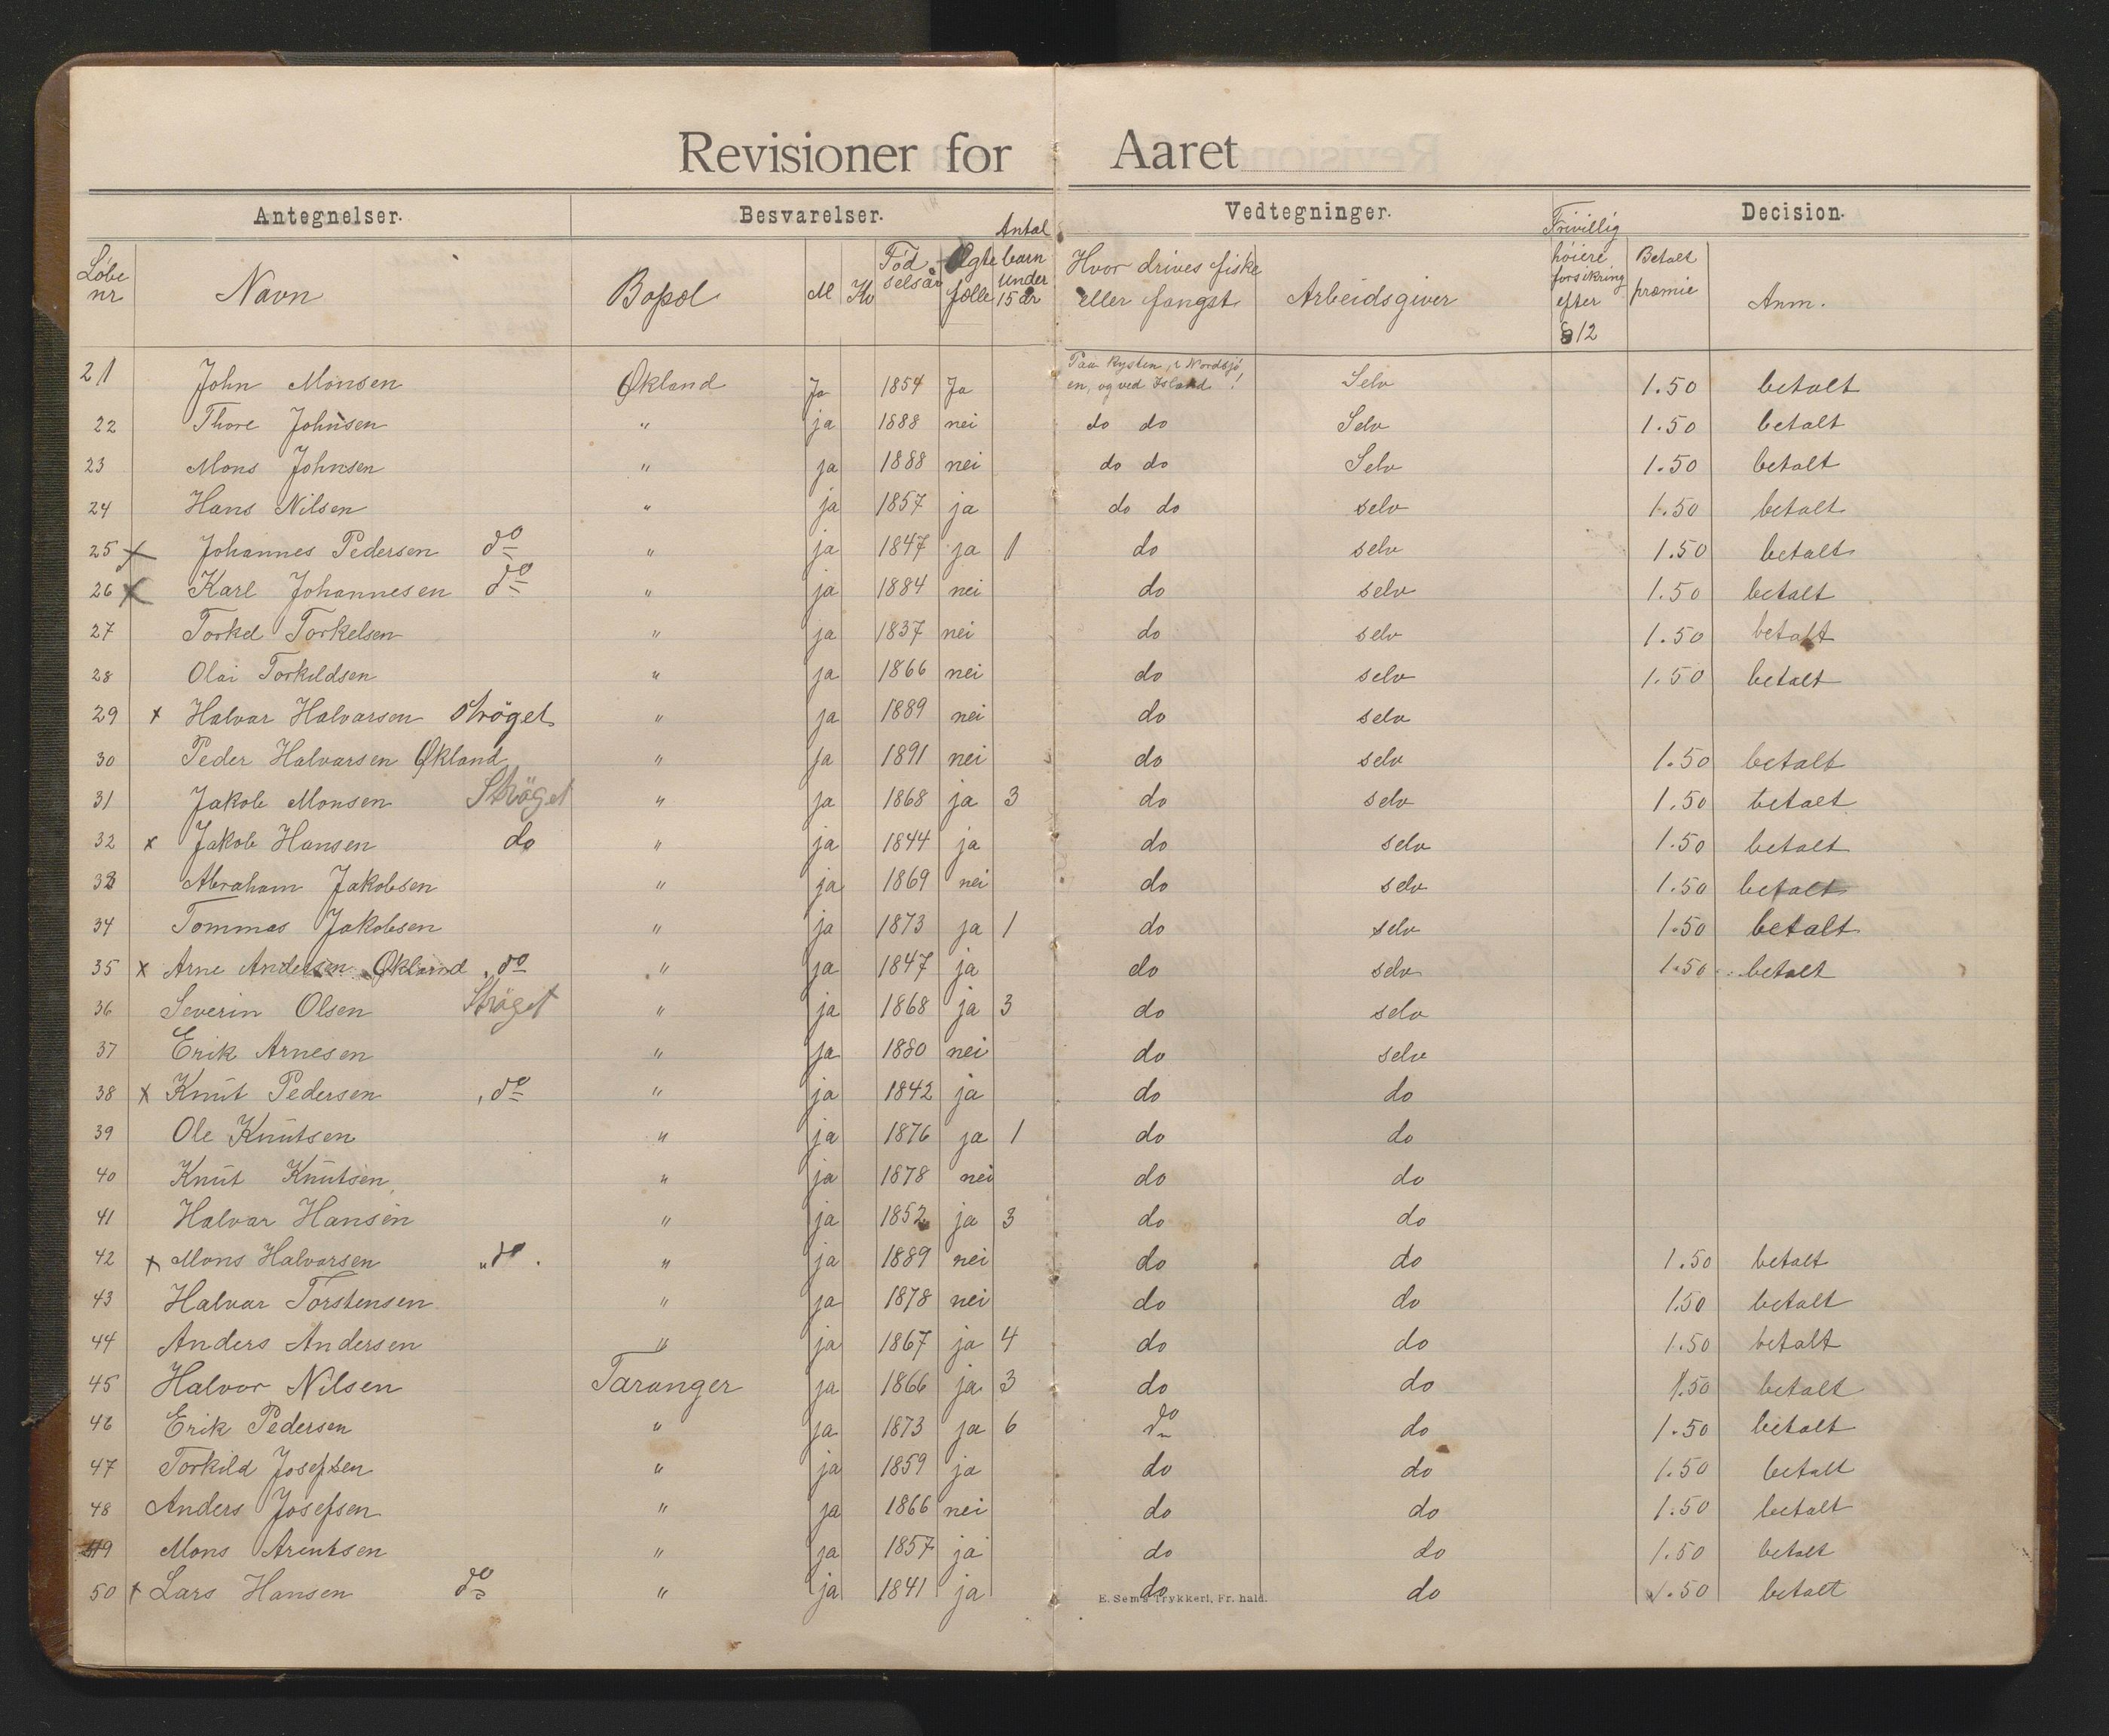 Revisioner for Aaret
Antegnelser. Besvarelser. Vedtegninger. Decision.
Løbe nr Navn Bopæl M Kv Fødselsår Ægtefælle Antal barn under 15 år Hvor drives fiske eller fangst Arbeidsgiver Frivillig høiere forsikring efter § 12 Betalt præmie Anm.
21 John Monsen Økland Ja 1854 Ja Paa Kysten, i Nordsjøen, og ved Island! Selv 1.50 betalt
22 Thore Johnsen " ja 1888 nei do do Selv 1.50 betalt
23 Mons Johnsen " ja 1888 nei do do Selv 1.50 betalt
24 Hans Nilsen " ja 1857 ja do do selv 1.50 betalt
25 x Johannes Pedersen do " ja 1847 ja 1 do selv 1.50 betalt
26 x Karl Johannesen do " ja 1884 nei do selv 1.50 betalt
27 Torkel Torkelsen " ja 1837 nei do selv 1.50 betalt
28 Olai Torkildsen " ja 1866 nei do selv 1.50 betalt
29 x Halvar Halvarsen Strøget " ja 1889 nei do selv
30 Peder Halvarsen Økland " ja 1891 nei do selv 1.50 betalt
31 Jakob Monsen Strøget " ja 1868 ja 3 do selv 1.50 betalt
32 x Jakob Hansen do " ja 1844 ja do selv 1.50 betalt
33 Abraham Jakobsen " ja 1869 nei do selv 1.50 betalt
34 Tommas Jakobsen " ja 1873 ja 1 do selv 1.50 betalt
35 x Arne Andersen Økland, do " ja 1847 ja do selv 1.50 betalt
36 Severin Olsen Strøget " ja 1868 ja 3 do selv
37 Erik Arnesen " ja 1880 nei do selv
38 x Knut Pedersen , do " ja 1842 ja do do
39 Ole Knutsen " ja 1876 ja 1 do do
40 Knut Knutsen " ja 1878 nei do do
41 Halvar Hansen " ja 1852 ja 3 do do
42 x Mons Halvarsen " do . " ja 1889 nei do do 1.50 betalt
43 Halvar Torstensen " ja 1878 nei do do 1.50 betalt
44 Anders Andersen " ja 1867 ja 4 do do 1.50 betalt
45 Halvor Nilsen Taranger ja 1866 ja 3 do do 1.50 betalt
46 Erik Pedersen " ja 1873 ja 6 do do 1.50 betalt
47 Torkild Josefsen " ja 1859 ja do do 1.50 betalt
48 Anders Josefsen " ja 1866 nei do do 1.50 betalt
49 Mons Arentsen " ja 1857 ja do do 1.50 betalt
50 x Lars Hansen do " ja 1841 ja do do 1.50 betalt
E. Sems Trykkeri, Fr. hald.